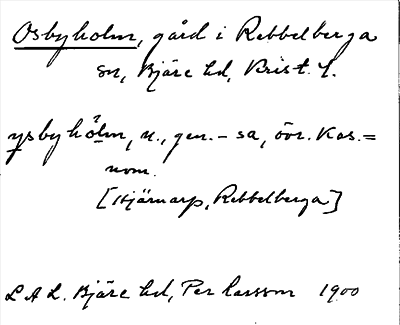 Osbyholm, gård i Rebbelberga
sn, Bjäre hd, Krist. l.
ysbyhölm, n., gen. -sa, övr. kas. =
nom.
[Hjärnarp, Rebbelberga]
L A L. Bjäre hd, Per Larsson 1900